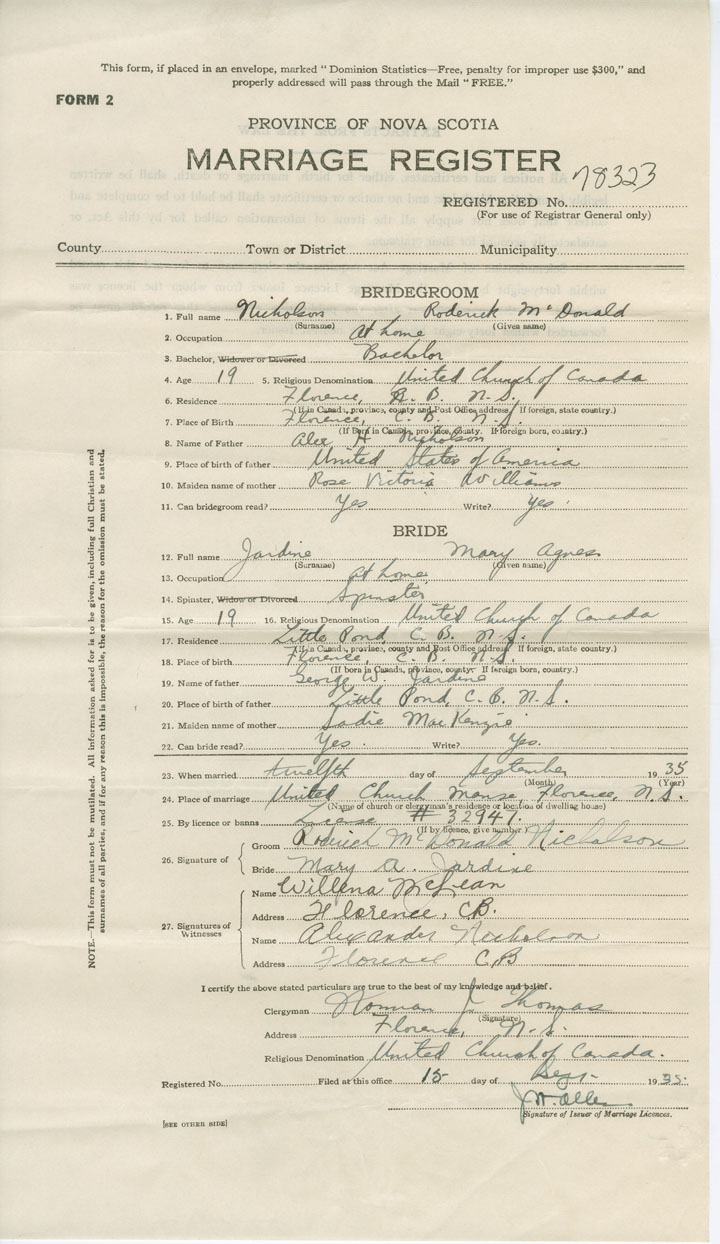 This form, if placed in an envelope, marked "Dominion Statistics—Free, penalty for improper use $300," and
properly addressed will pass through the Mail "FREE."
FORM 2
PROVINCE OF NOVA SCOTIA
MARRIAGE REGISTER
REGISTERED No. 78323
(For use of Registrar General only)
County Town or District Municipality
BRIDEGROOM
1. Full name Nicholson Roderick McDonald
(Surname) (Given name)
2. Occupation At home
3. Bachelor, Widower or Divorced Bachelor
4. Age 19 5. Religious Denomination United Church of Canada
6. Residence Florence, C. B. N. S.
(If in Canada, province, county and Post Office address. If foreign, state country.)
7. Place of Birth Florence, C. B. N. S.
(If Born in Canada, province, county. If foreign born, country.)
8. Name of Father Alex H Nicholson
9. Place of birth of father United States of America
10. Maiden name of mother Rose Victoria Williams
11. Can bridegroom read? Yes Write? Yes.
BRIDE
12. Full name Jardine Mary Agnes
(Surname) (Given name)
13. Occupation At home
14. Spinster, Widow or Divorced Spinster
15. Age 19 16. Religious Denomination United Church of Canada
17. Residence Little Pond, C. B. N. S.
(If in Canada, province, county and Post Office address. If foreign, state country.)
18. Place of birth Florence, C. B. N. S.
(If born in Canada, province, county. If foreign born, country.)
19. Name of father George W. Jardine
20. Place of birth of father Little Pond, C. B. N. S.
21. Maiden name of mother Sadie MacKenzie
22. Can bride read? Yes. Write? Yes.
23. When married twelfth day of September 1935
(Month) (Year)
24. Place of marriage United Church Manse, Florence, N. S.
(Name of church or clergyman's residence or location of dwelling house)
25. By licence or banns License # 32947.
(If by licence, give number.)
26. Signature of Groom Roderick McDonald Nicholson
Bride Mary A. Jardine
27. Signatures of Witnesses
Name Willena McLean
Address Florence, CB.
Name Alexander Nicholson
Address Florence C.B
I certify the above stated particulars are true to the best of my knowledge and belief.
Clergyman Norman J. Thomas
(Signature)
Address Florence, N. S.
Religious Denomination United Church of Canada.
Registered No. Filed at this office 15 day of Sept. 1935.
J. W. Allen
Signature of Issuer of Marriage Licences.
[SEE OTHER SIDE]
NOTE.—This form must not be mutilated. All information asked for is to be given, including full Christian and
surnames of all parties, and if for any reason this is impossible, the reason for the omission must be stated.